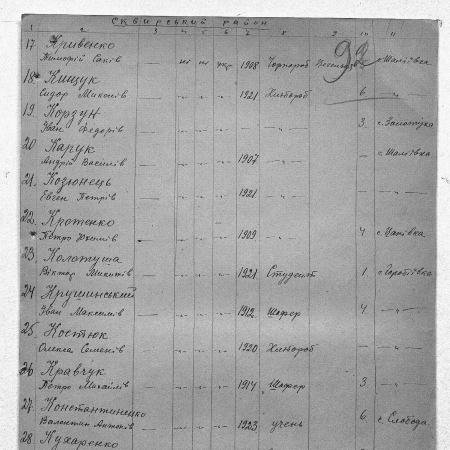 Сквирський район
1 2 3 4 5 6 7 8 9 10 11
17 Кривенко
Тимофій Саків — " " укр 1908 Чорнороб 92 с. Шамівка
18 Кищук
Сидор Микитів — " " " 1921 Хлібороб 6 — " —
19. Корзун
Іван Федорів — " " " — 3
20 Карук
Андрій Василів — " " " 1907 — с. Шамівка
21. Козюнець
Євген Петрів — " " " 1921 — — " —
22. Кротенко
Петро Юхимів — " " " 1909 4
23. Колотуша
Віктор Микитів — " " " 1921 Студент 1.
24 Крушинський
Іван Максимів — " " " 1912 Шофер 4. — " —
25 Костюк
Олекса Семенів — " " " 1920 Хлібороб — — " —
26 Кравчук
Петро Михайлів — " " " 1914 Шофер 3 — " —
27. Константиненко
Валентин Антонів — " " " 1923 учень 6 с. Слобода
28. Кухаренко